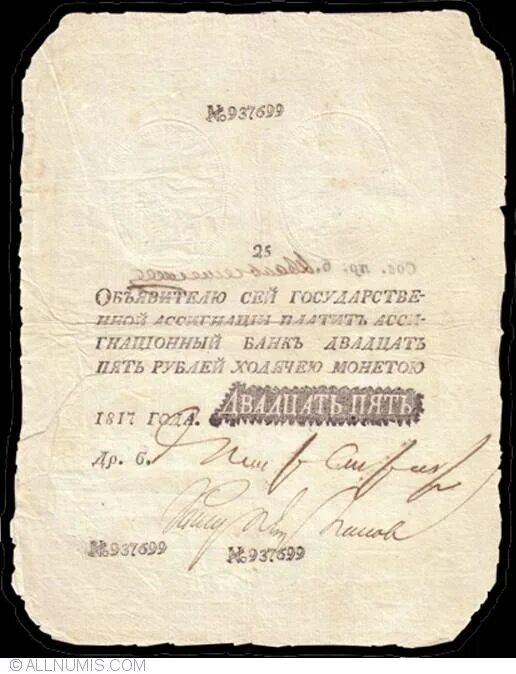 №937699
25
Сов. пр. б.
Объявителю сей государстве-
нной ассигнаціи платитъ асси-
гнаціонный банкъ двадцать
пять рублей ходячею монетою
1817 года. ДВАДЦАТЬ ПЯТЬ
Др. б.
№937699 №937699
© ALLNUMIS.COM